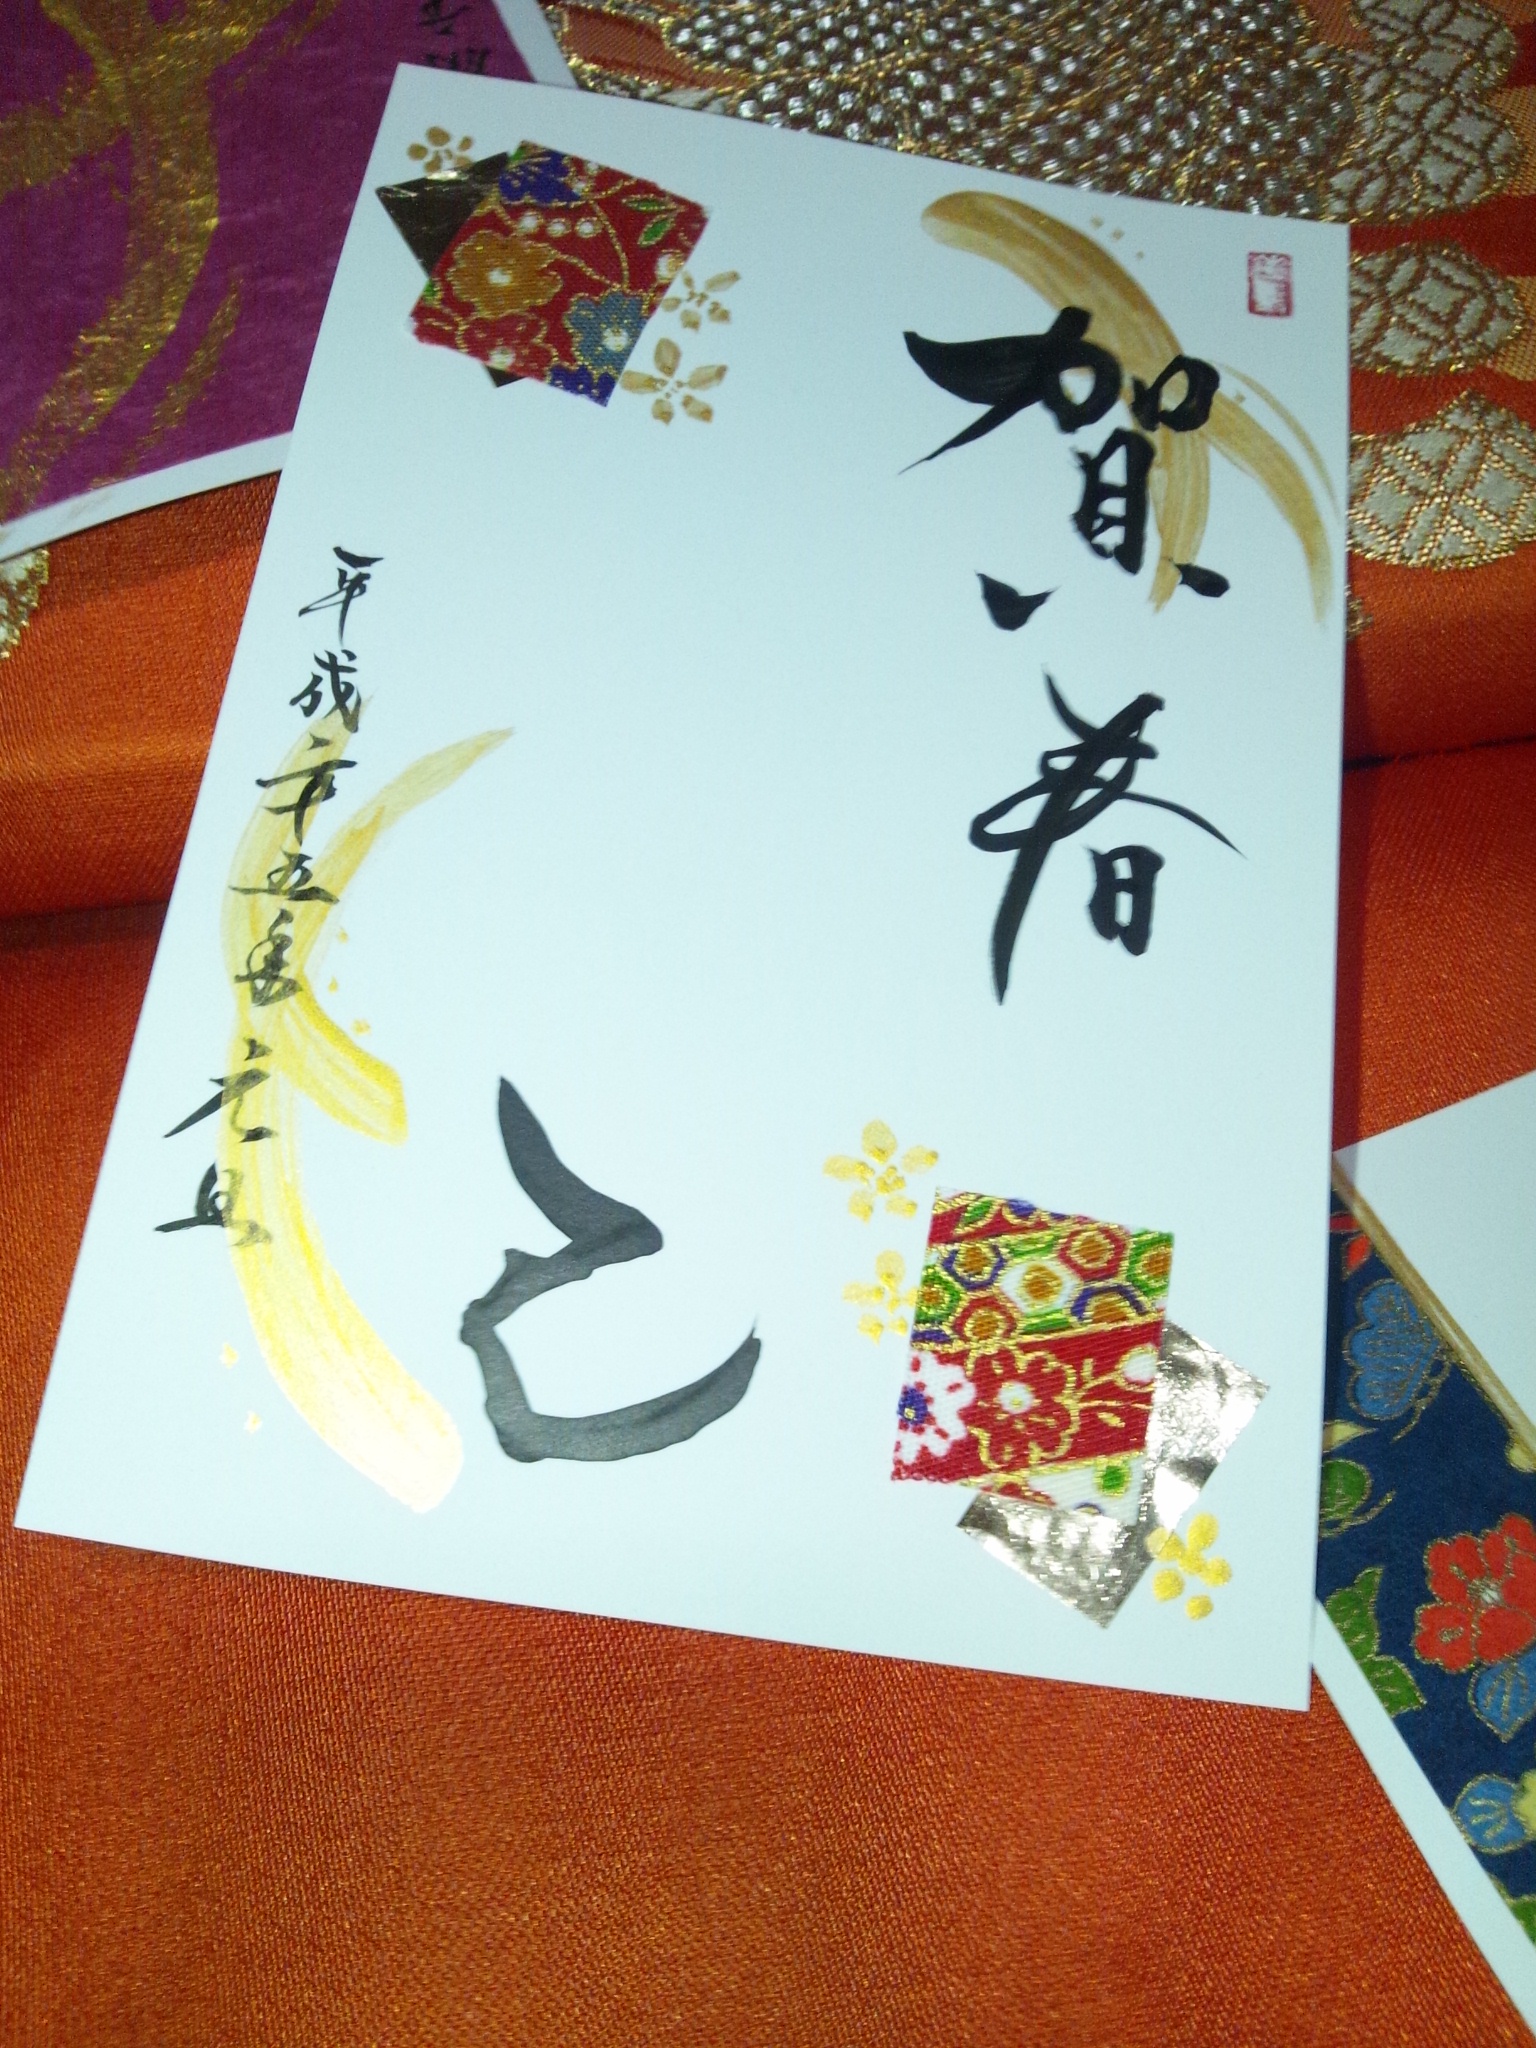 賀春
巳
平成二十五年 元旦